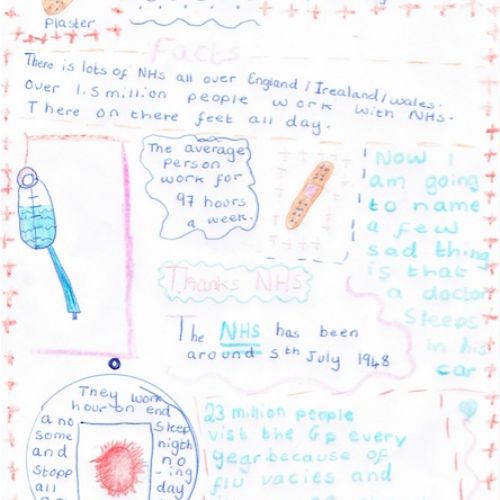 Plaster
Facts
There is lots of NHS all over England / Irealand / wales.
Over 1.5 million people work with NHS.
There on there feet all day.
The average
Person
work for
97 hours
a week.
Now I
am going
to name
a few
sad thing
is that
a doctor
Sleeps
in his
car
Thanks NHS
The NHS has been
around 5th July 1948
They work
hour on end
a no Sleep
some nigth
and no
stopp -ing
all day
23 million people
vist the Gp every
year because of
flu vacies and